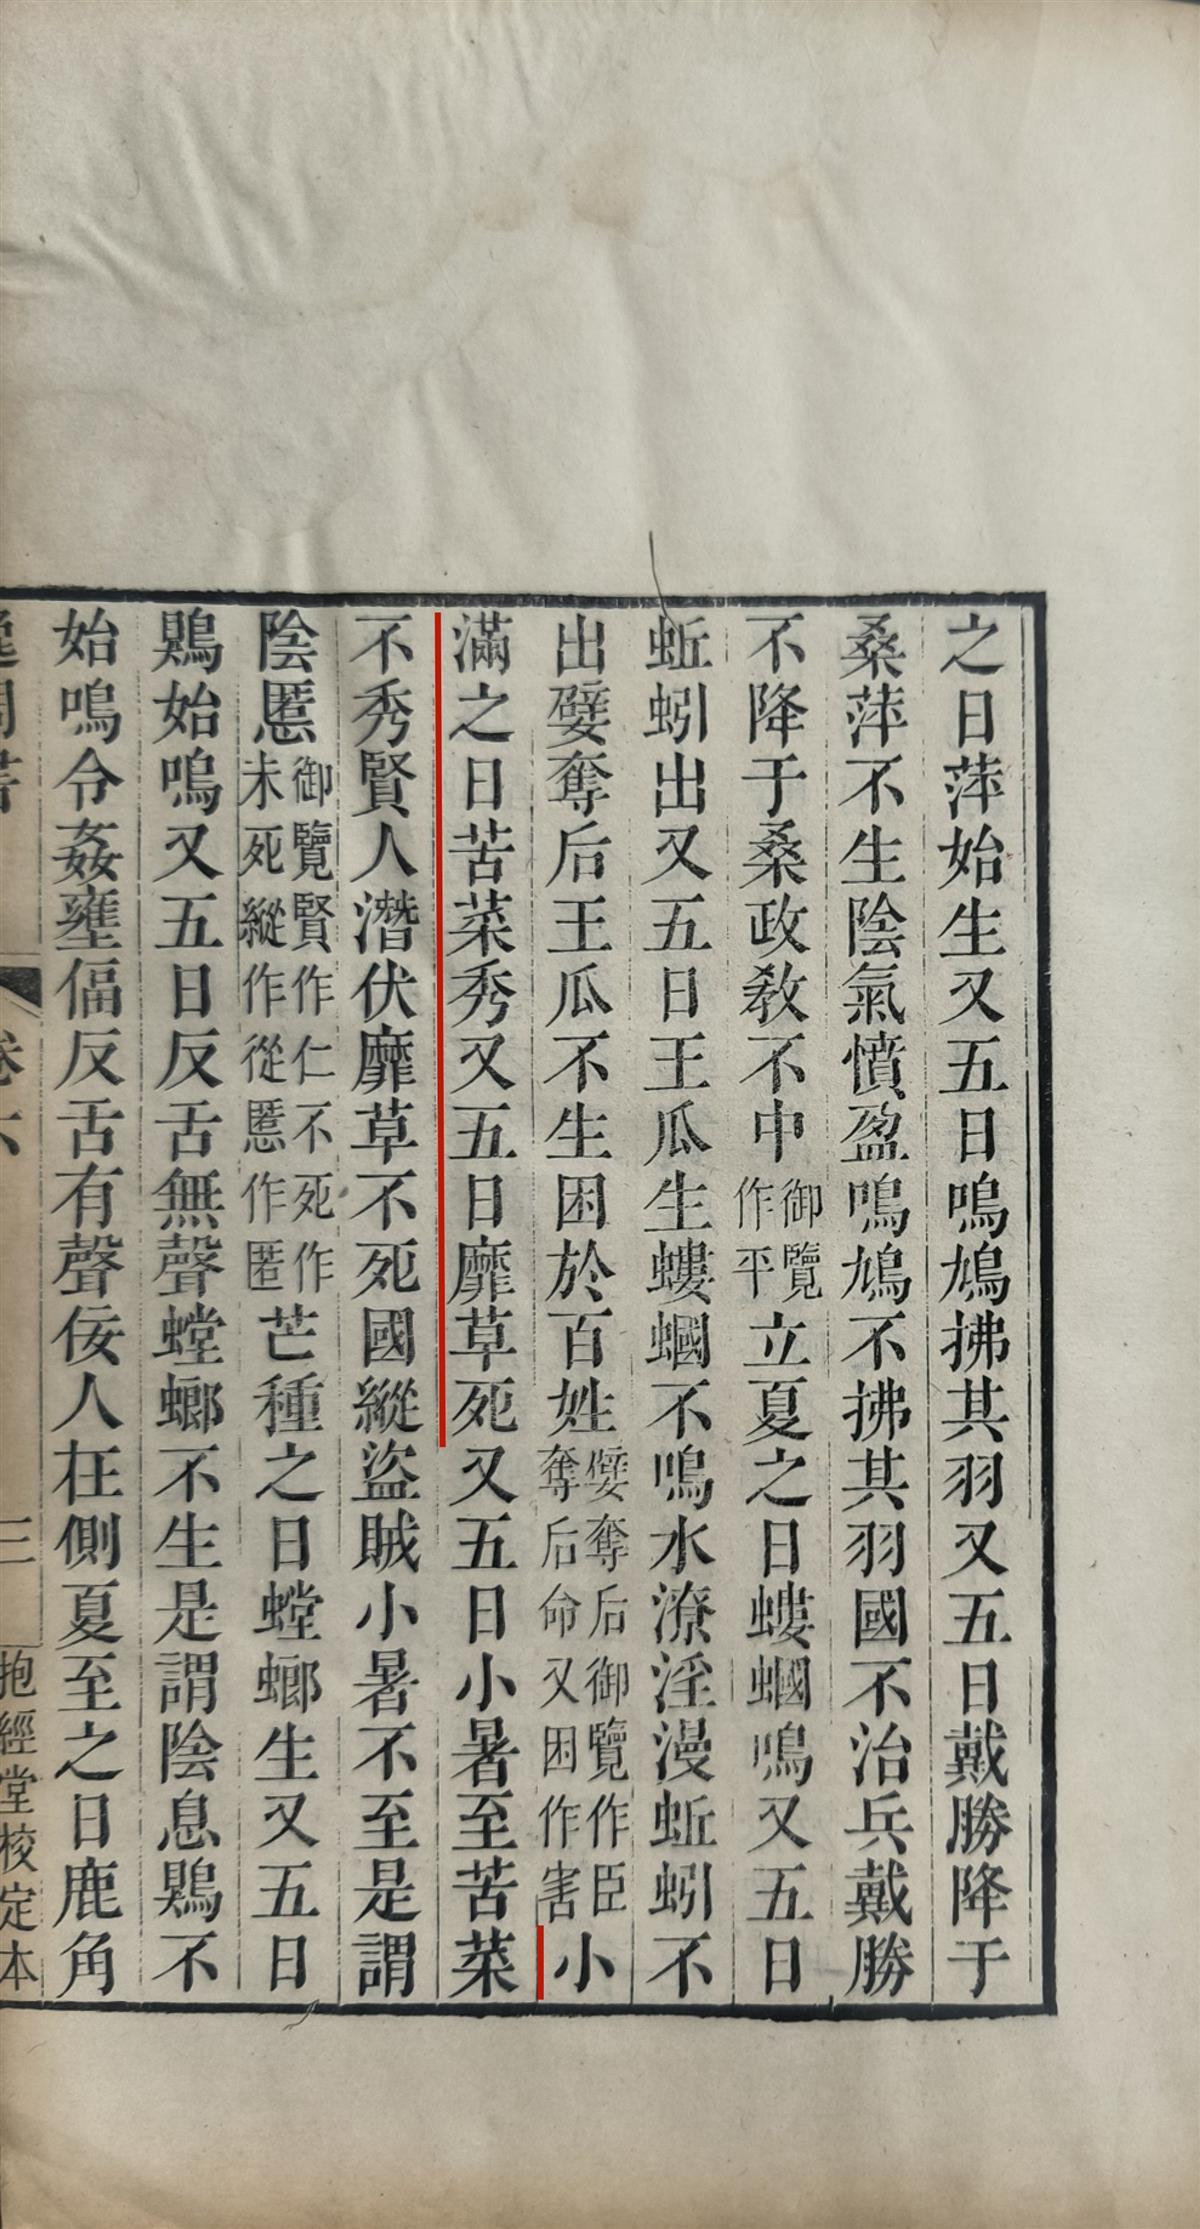 之日萍始生又五日鳴鳩拂其羽又五日戴勝降于
桑萍不生陰氣憤盈鳴鳩不拂其羽國不治兵戴勝
不降于桑政教不中御覽作平立夏之日螻蟈鳴又五日
蚯蚓出又五日王瓜生螻蟈不鳴水潦淫漫蚯蚓不
出嬖奪后王瓜不生困於百姓嬖奪后御覽作臣奪后命又困作害小
滿之日苦菜秀又五日靡草死又五日小暑至苦菜
不秀賢人潛伏靡草不死國縱盜賊小暑不至是謂
陰慝御覽賢作仁不死作未死縱作從慝作匿芒種之日螳螂生又五日
鵙始鳴又五日反舌無聲螳螂不生是謂陰息鵙不
始鳴令姦壅偪反舌有聲佞人在側夏至之日鹿角
逸周書 卷六 三 抱經堂校定本